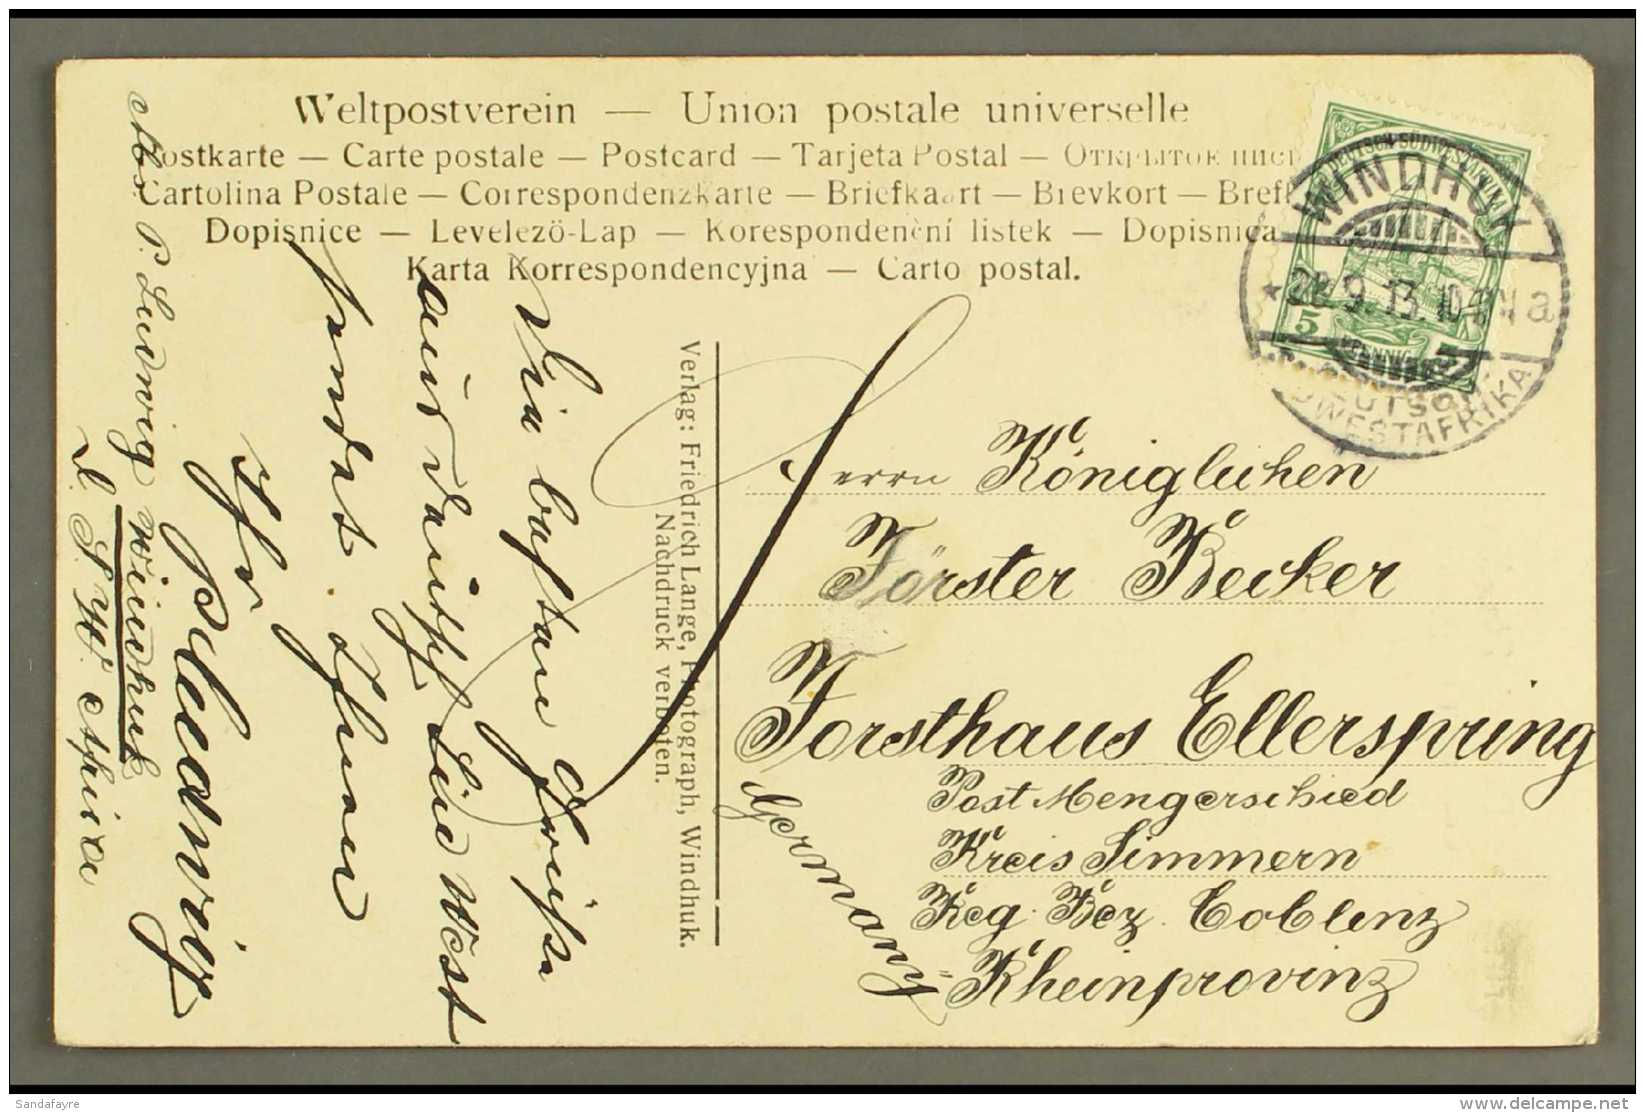 Weltpostverein — Union postale universelle
Postkarte — Carte postale — Postcard — Tarjeta Postal —
Cartolina Postale — Correspondenzkarte — Briefkaart — Brevkort —
Dopisnice — Levelező-Lap — Korespondenční listek — Dopisnica
Karta Korrespondencyjna — Carto postal.
DEUTSCH-SÜDWESTAFRIKA
5 PFENNIG 5
WINDHUK
9.13.10-11 a
DEUTSCH-
SÜDWESTAFRIKA
Herrn Königlichen
Förster Becker
Forsthaus Ellerspring
Post Mengerschied
Kreis Simmern
Reg. Bez. Coblenz
Rheinprovinz
Germany
Verlag: Friedrich Lange, Photograph, Windhuk.
Nachdruck verboten.
Die besten Grüße
aus Deutsch Süd West
sendet Ihnen
Ihr
P Ludwig
Abs. P. Ludwig Windhuk
D. S. W. Afrika
Sandafayre